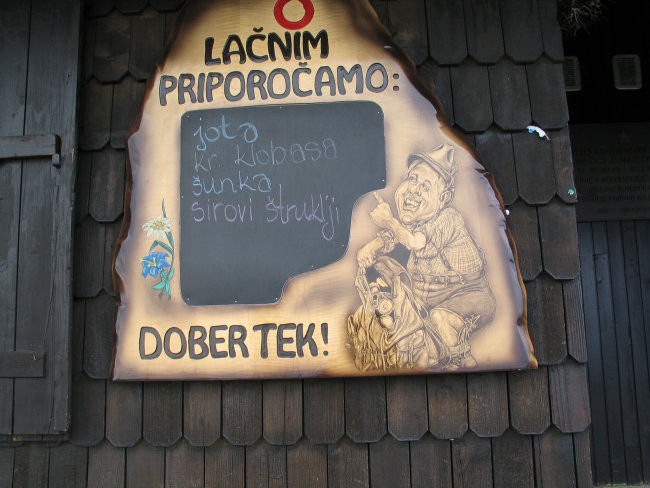 LAČNIM
PRIPOROČAMO:
jota
kr. klobasa
šunka
sirovi štruklji
DOBER TEK!